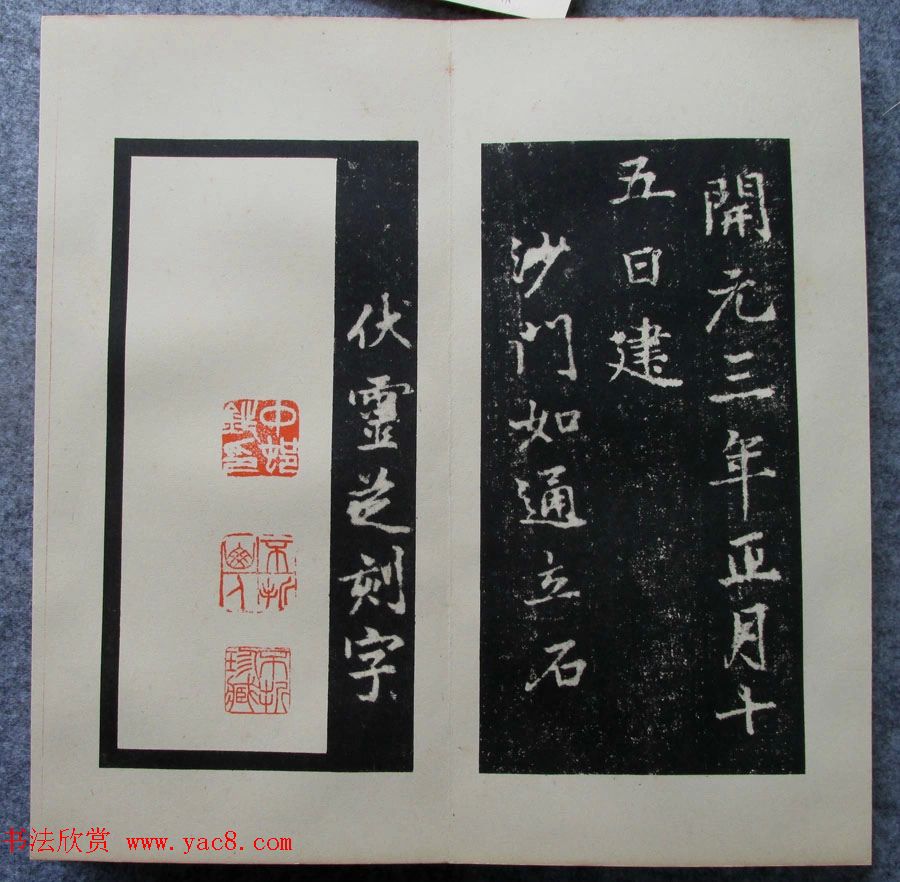 開元三年正月十
五日建
沙門如通立石
伏靈芝刻字
不折
珍藏
书法欣赏 www.yac8.com